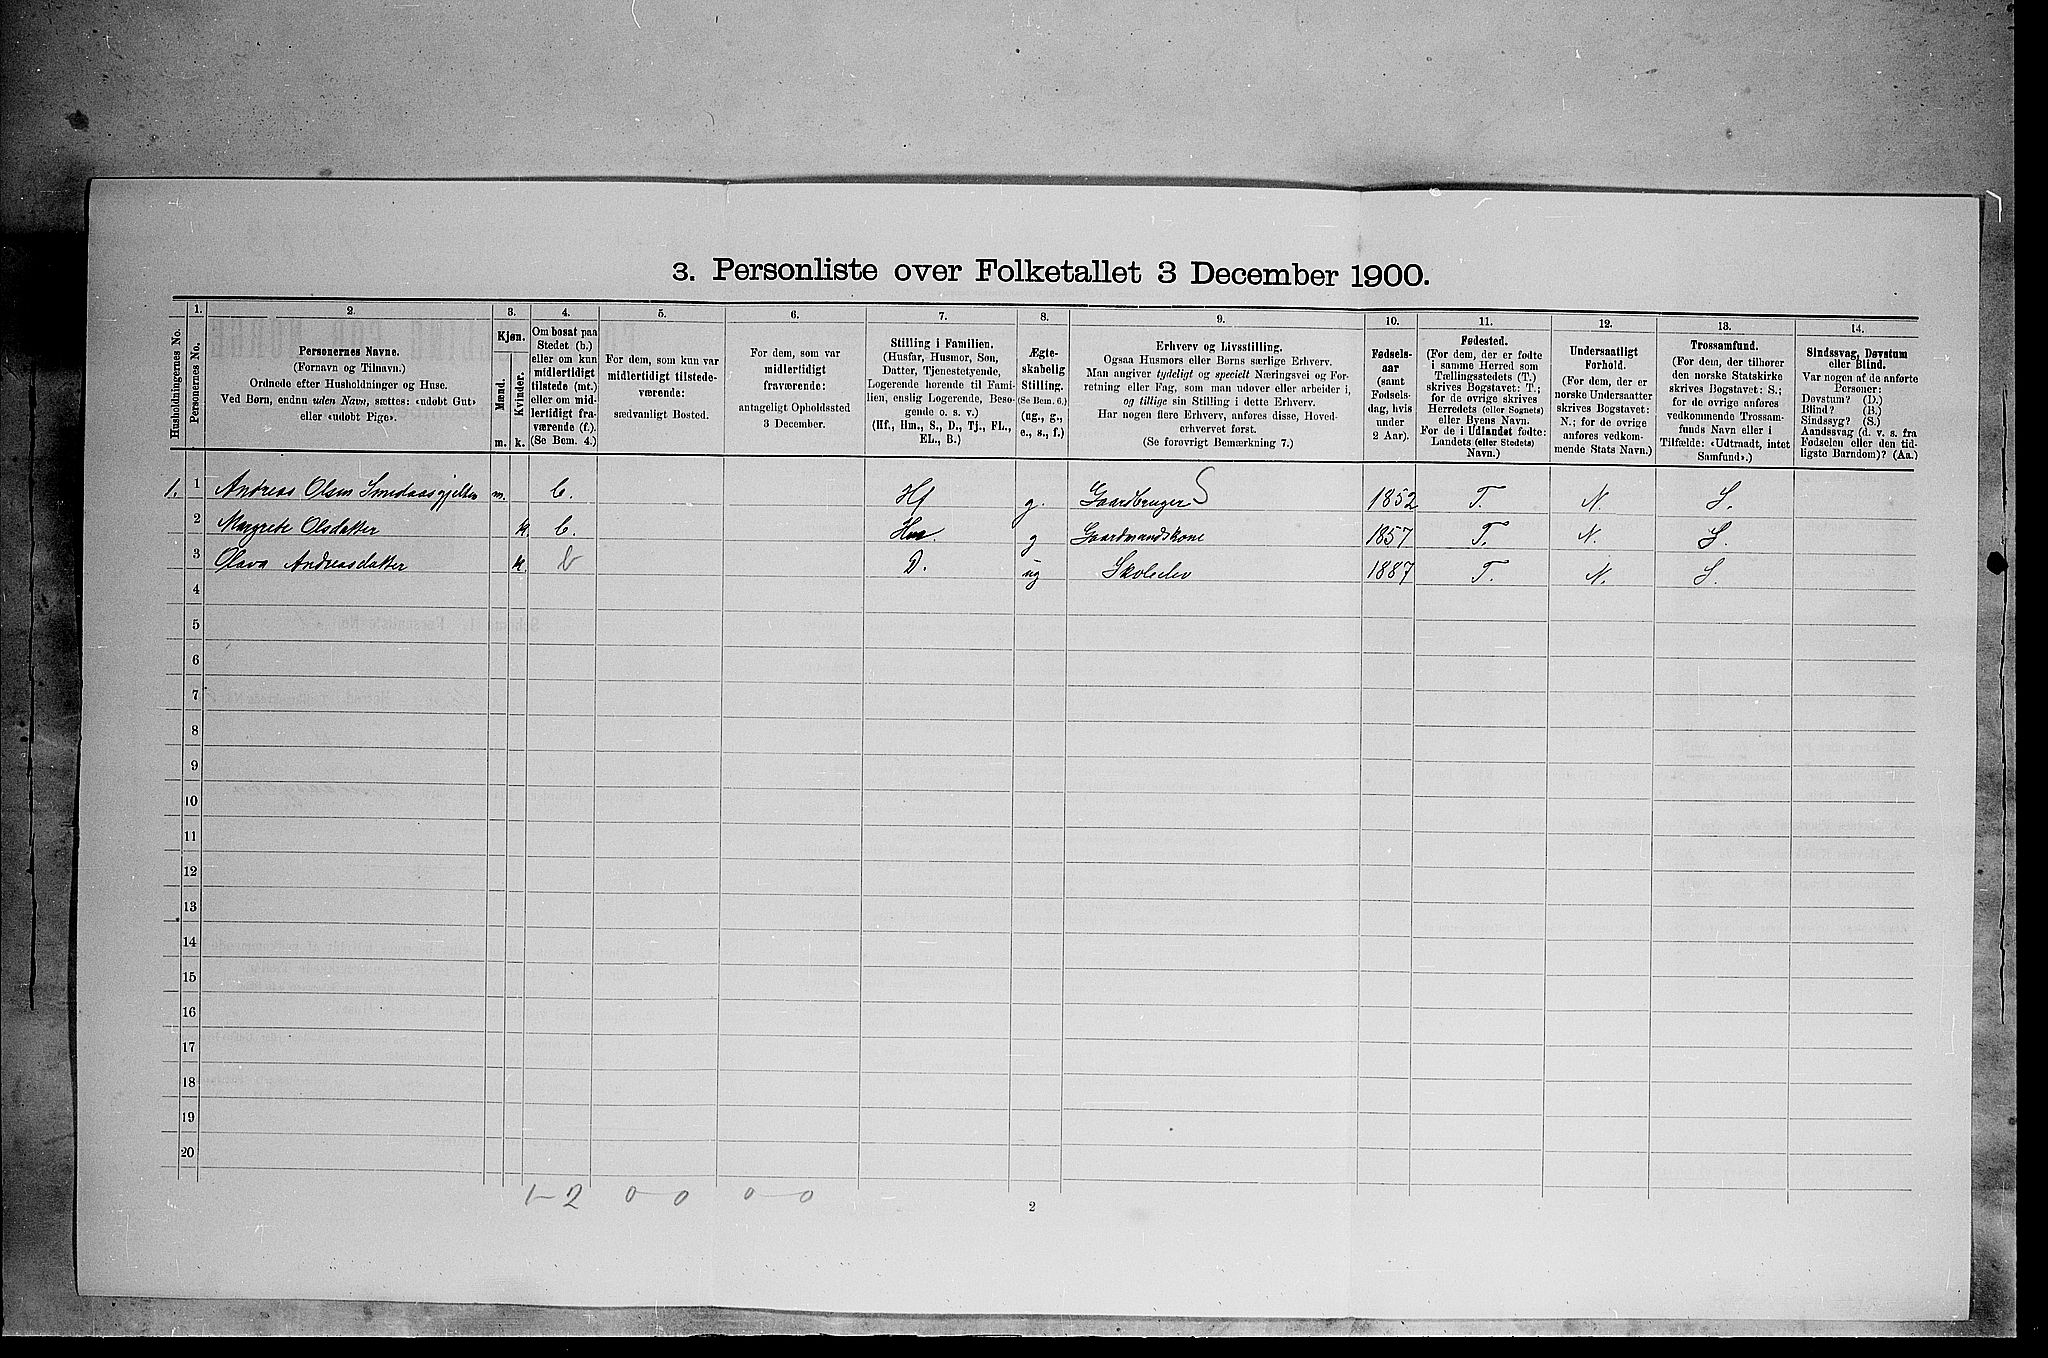 3. Personliste over Folketallet 3 December 1900.
1. 2. 3. 4. 5. 6. 7. 8. 9. 10. 11. 12. 13. 14.
Husholdningernes No.
Personernes No.
Personernes Navne.
(Fornavn og Tilnavn.)
Ordnede efter Husholdninger og Huse.
Ved Børn, endnu uden Navn, sættes: «udøbt Gut»
eller «udøbt Pige».
Kjøn.
Mænd.
Kvinder.
m. k.
Om bosat paa
Stedet (b.)
eller om kun
midlertidigt
tilstede (mt.)
eller om mid-
lertidigt fra-
værende (f.).
(Se Bem. 4.)
For dem, som kun var
midlertidigt tilstede-
værende:
sædvanligt Bosted.
For dem, som var
midlertidigt
fraværende:
antageligt Opholdssted
3 December.
Stilling i Familien.
(Husfar, Husmor, Søn,
Datter, Tjenestetyende,
Logerende hørende til Fami-
lien, enslig Logerende, Besø-
gende o. s. v.)
(Hf., Hm., S., D., Tj., FL.,
EL., B.)
Ægte-
skabelig
Stilling.
(Se Bem. 6.)
(ug., g.,
e., s., f.)
Erhverv og Livsstilling.
Ogsaa Husmors eller Børns særlige Erhverv.
Man angiver tydeligt og specielt Næringsvei og For-
retning eller Fag, som man udover eller arbeider i,
og tillige sin Stilling i dette Erhverv.
Har nogen flere Erhverv, anføres disse, Hoved-
erhvervet først.
(Se forøvrigt Bemærkning 7.)
Fødsels-
aar
(samt
Fødsels-
dag, hvis
under
2 Aar).
Fødested.
(For dem, der er fødte
i samme Herred som
Tællingsstedets (T.)
skrives Bogstavet: T.;
for de øvrige skrives
Herredets (eller Sognets)
eller Byens Navn.
For de i Udlandet fødte:
Landets (eller Stedets)
Navn.)
Undersaatligt
Forhold.
(For dem, der er
norske Undersaatter
skrives Bogstavet:
N.; for de øvrige
anføres vedkom-
mende Stats Navn.)
Trossamfund.
(For dem, der tilhører
den norske Statskirke
skrives Bogstavet: S.;
for de øvrige anføres
vedkommende Trossam-
funds Navn eller i
Tilfælde: «Udtraadt, intet
Samfund».)
Sindssvag, Døvstum
eller Blind.
Var nogen af de anførte
Personer:
Døvstum? (D.)
Blind? (B.)
Sindssyg? (S.)
Aandssvag (d. v. s. fra
Fødselen eller den tid-
ligste Barndom)? (Aa.)
1. 1 Andreas Olsen Smedaasgjelten m. b. Hf g. Gaardbruger S 1852 T. N. S.
2 Margrete Olsdatter k. b. Hm. g Gaardmandskone 1857 T. N. S.
3 Olava Andreasdatter k. b D. ug Skoleelev 1887 T. N. S.
4
5
6
7
8
9
10
11
12
13
14
15
16
17
18
19
20
1-2 0-0 0-0
2